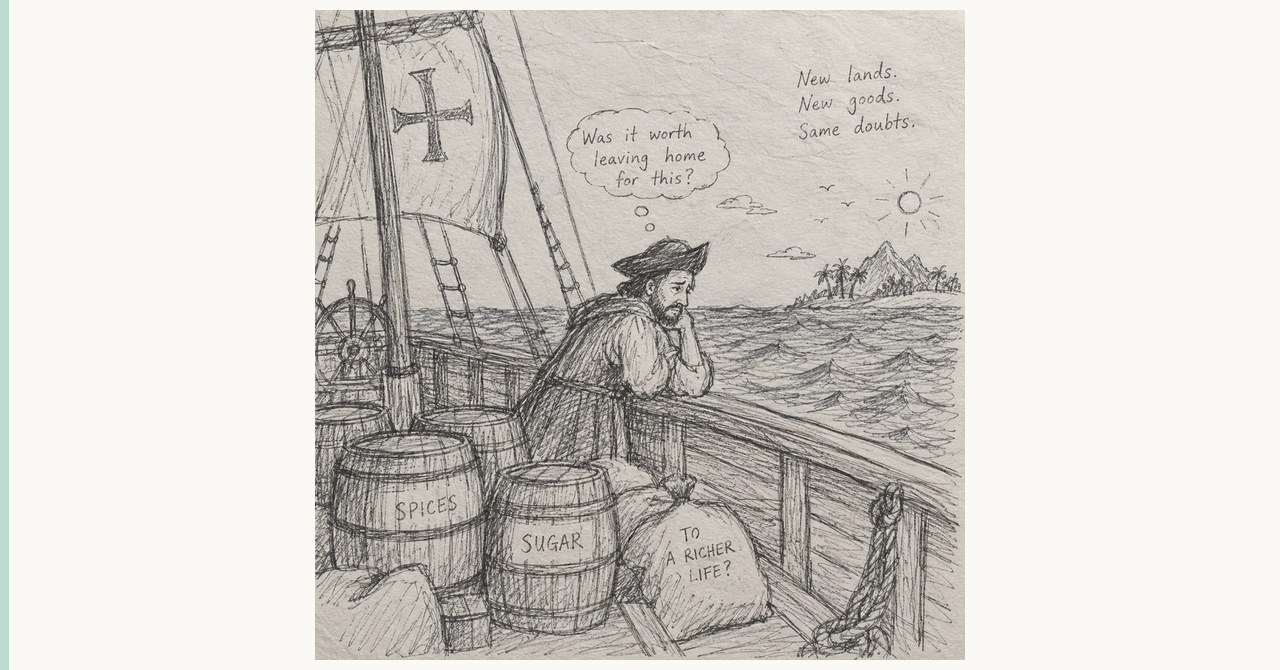 New lands.
New goods.
Same doubts.
Was it worth
leaving home
for this?
SPICES
SUGAR
TO
A RICHER
LIFE?